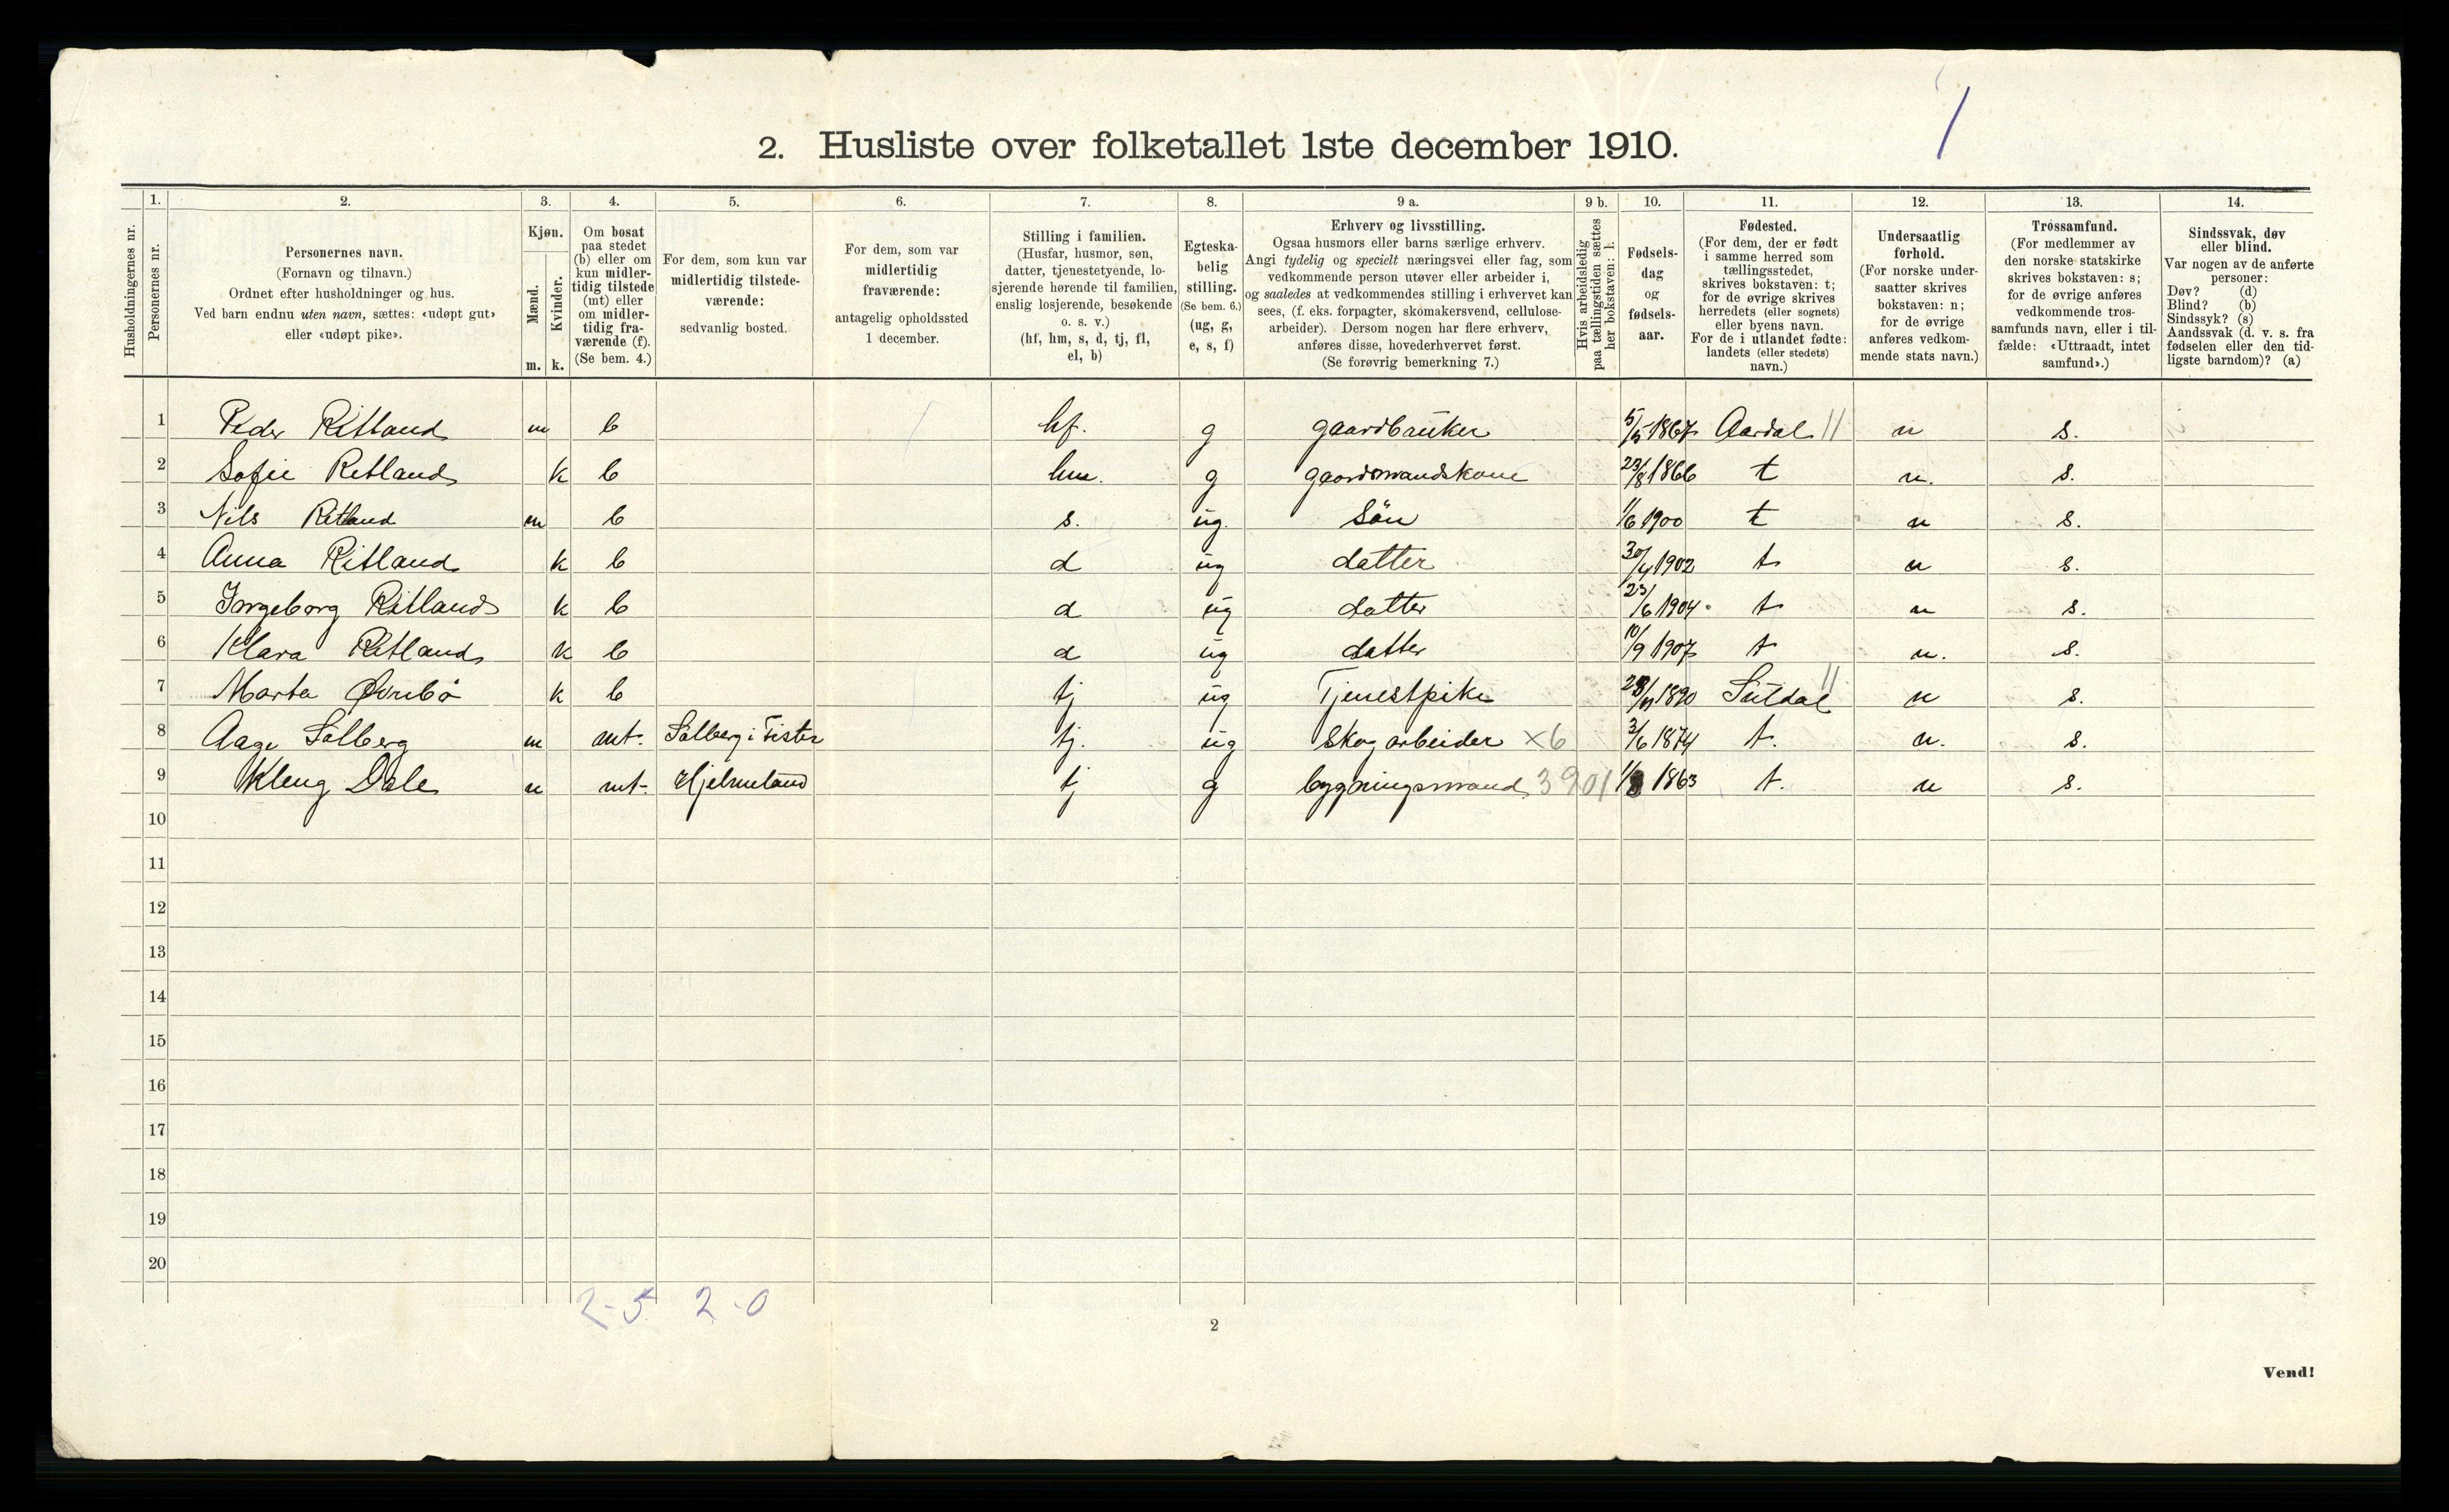 2. Husliste over folketallet 1ste december 1910.
Husholdningernes nr.
1. Personernes nr.
2. Personernes navn. (Fornavn og tilnavn.) Ordnet efter husholdninger og hus. Ved barn endnu uten navn, sættes: «udøpt gut» eller «udøpt pike».
3. Kjøn. Mænd. m. Kvinder. k.
4. Om bosat paa stedet (b) eller om kun midlertidig tilstede (mt) eller om midlertidig fraværende (f). (Se bem. 4.)
5. For dem, som kun var midlertidig tilstedeværende: sedvanlig bosted.
6. For dem, som var midlertidig fraværende: antagelig opholdssted 1 december.
7. Stilling i familien. (Husfar, husmor, søn, datter, tjenestetyende, losjerende hørende til familien, enslig losjerende, besøkende o. s. v.) (hf, hm, s, d, tj, fl, el, b)
8. Egteskabelig stilling. (Se bem. 6.) (ug, g, e, s, f)
9 a. Erhverv og livsstilling. Ogsaa husmors eller barns særlige erhverv. Angi tydelig og specielt næringsvei eller fag, som vedkommende person utøver eller arbeider i, og saaledes at vedkommendes stilling i erhvervet kan sees, (f. eks. forpagter, skomakersvend, cellulosearbeider). Dersom nogen har flere erhverv, anføres disse, hovederhvervet først. (Se forøvrig bemerkning 7.)
9 b. Hvis arbeidsledig paa tællingstiden sættes her bokstaven: l.
10. Fødselsdag og fødselsaar.
11. Fødested. (For dem, der er født i samme herred som tællingsstedet, skrives bokstaven: t; for de øvrige skrives herredets (eller sognets) eller byens navn. For de i utlandet fødte: landets (eller stedets) navn.)
12. Undersaatlig forhold. (For norske undersaatter skrives bokstaven: n; for de øvrige anføres vedkommende stats navn.)
13. Trossamfund. (For medlemmer av den norske statskirke skrives bokstaven: s; for de øvrige anføres vedkommende trossamfunds navn, eller i tilfælde: «Uttraadt, intet samfund».)
14. Sindssvak, døv eller blind. Var nogen av de anførte personer: Døv? (d) Blind? (b) Sindssyk? (s) Aandssvak (d. v. s. fra fødselen eller den tidligste barndom)? (a)
1 Peder Ritland m b hf. g gaardbruker 5/5 1867 Aardal n s.
2 Sofie Ritland k b hm. g gaardmandskone 23/8 1866 t n. s.
3 Nils Ritland m b s. ug. Sön 1/6 1900 t n s.
4 Anna Ritland k b d ug datter 30/4 1902 t n s.
5 Ingeborg Ritland k b d ug datter 23/6 1904 t n s.
6 Klara Ritland k b d ug datter 10/9 1907 t n. s.
7 Marta Øvrebö k b tj ug Tjenestpike 1890 Suldal n s.
8 Aage Solberg m mt. Solberg i Fister tj. ug Skogarbeider x6 3/6 1874 t. n. s.
9 Kleng Dale m mt. Hjelmeland tj g bygningsmand 3901 1863 t. n s.
10
11
12
13
14
15
16
17
18
19
20
2-5 2-0
2
Vend!